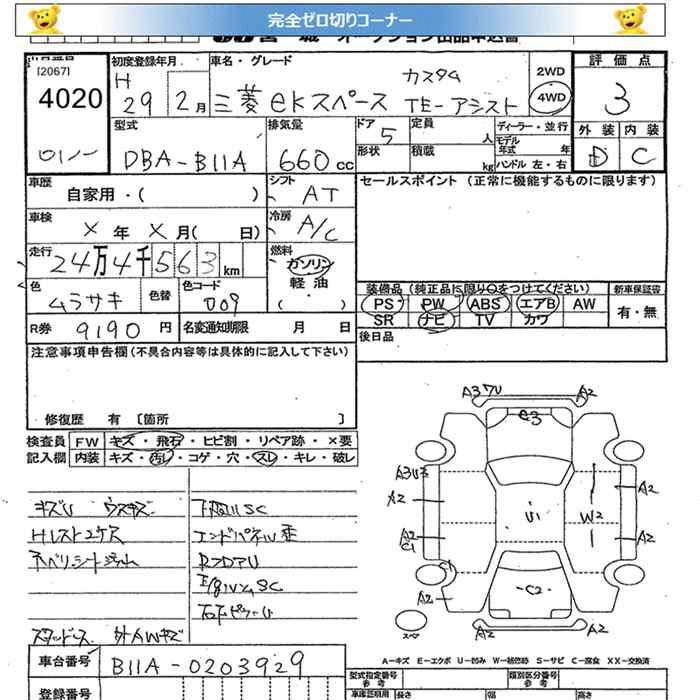 完全ゼロ切りコーナー
[2067]
4020
初度登録年月
H 29 2月
車名・グレード
三菱 eKスペース カスタム TE-アシスト
2WD
4WD
評価点
3
外装 内装
D C
型式
DBA-B11A
排気量
660cc
ドア
5
定員
人
形状
積載
kg
ディーラー・並行
モデル年式 年
ハンドル 左・右
車歴
自家用・( )
シフト
AT
セールスポイント (正常に機能するものに限ります)
車検
X年 X月( 日)
冷房
A/C
走行
24万4千563km
燃料
ガソリン
軽油
色
ムラサキ
色替
色コード
009
装備品 (純正品に限り○をつけてください)
新車保証書
PS PW ABS エアB AW
有・無
SR ナビ TV カワ
R券 9190円
名変通知期限 月 日
後日品
注意事項申告欄(不具合内容等は具体的に記入して下さい)
修復歴 有 [箇所 ]
検査員記入欄
FW キズ・飛石・ヒビ割・リペア跡・×要
内装 キズ・汚れ・コゲ・穴・スレ・キレ・破レ
A3 A2
C3
A2
A2
U1
W2
A2
A2
C1
A2
C1
C2
A2
A2
スペア
キズU ウスキズ
SC
エンドパネル歪
SC
外AWキズ
車台番号
B11A-0203929
登録番号
A-キズ E-エクボ U-凹み W-補修跡 S-サビ C-腐食 XX-交換済
型式指定番号 参考
類別区分番号 参考
車庫証明用
長さ
幅
高さ